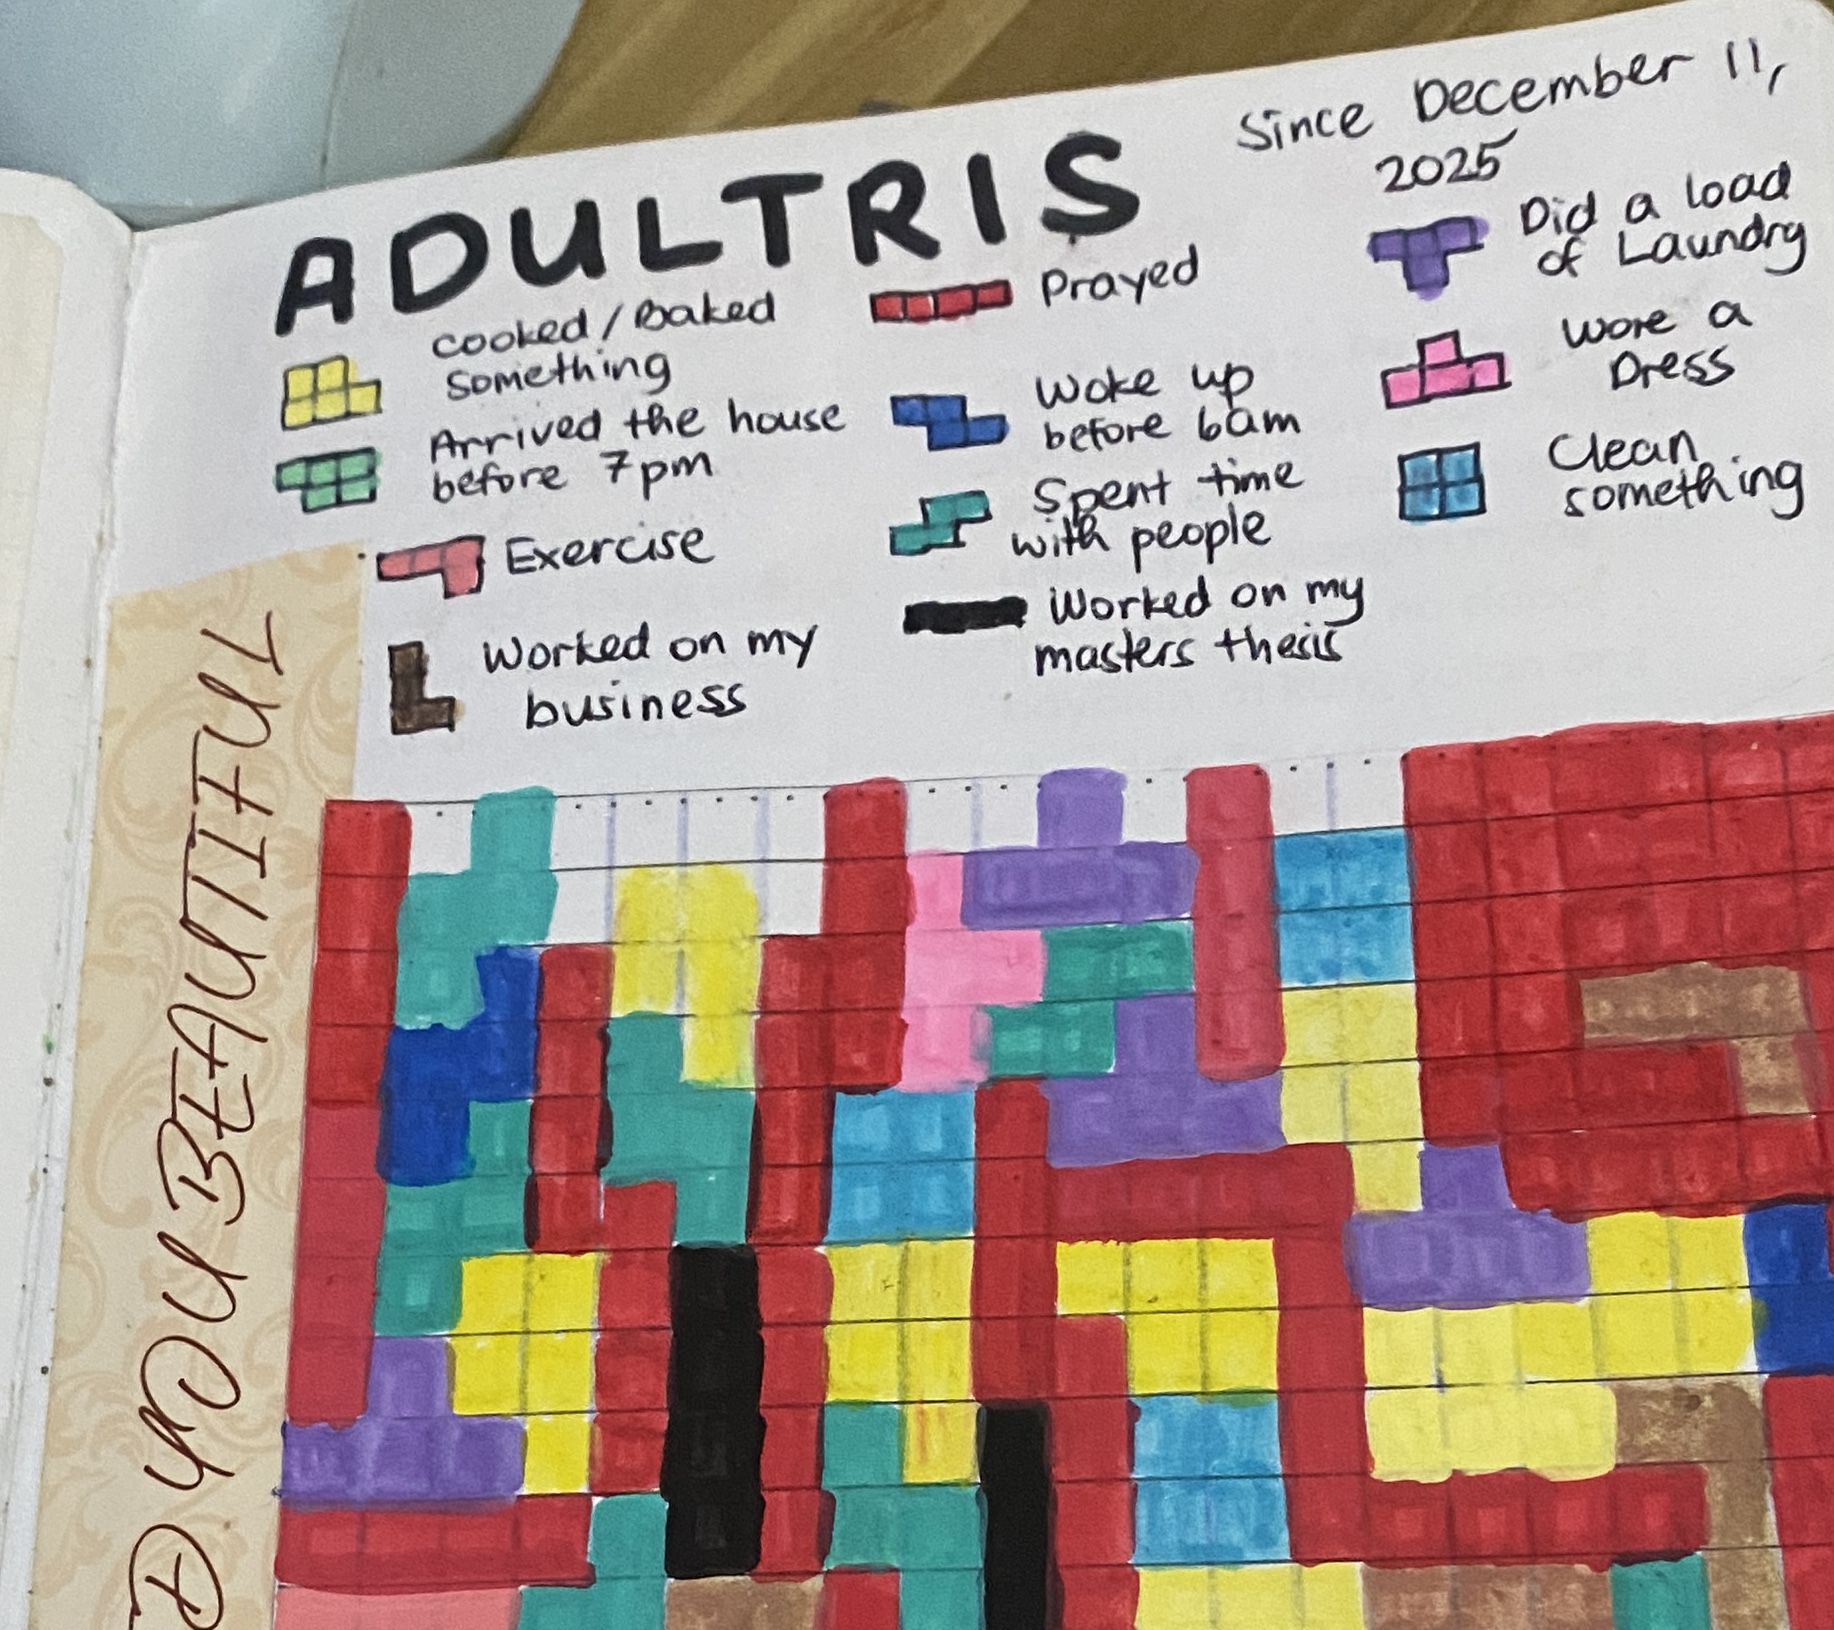 Since December 11,
2025
ADULTRIS
Cooked/Baked
something
Arrived the house
before 7pm
Exercise
Worked on my
business
Prayed
Woke up
before 6am
Spent time
with people
Worked on my
masters thesis
Did a load
of Laundry
Wore a
Dress
Clean
something
D YOU BEAUTIFUL